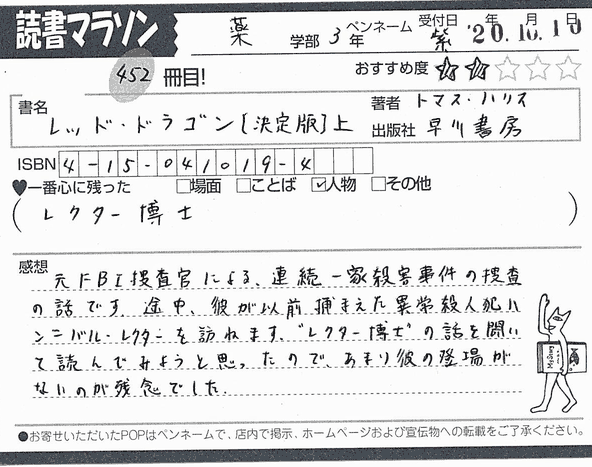 読書マラソン
薬 学部 3年 ペンネーム 紫 受付日 '20年.10月.10日
452 冊目!
おすすめ度 ★★☆☆☆
書名 レッド・ドラゴン[決定版]上
著者 トマス・ハリス
出版社 早川書房
ISBN 4-15-041019-4
♥一番心に残った □場面 □ことば ☑人物 □その他
(レクター博士)
感想
元FBI捜査官による、連続一家殺害事件の捜査
の話です。途中、彼が以前捕まえた異常殺人犯ハ
ンニバル・レクターを訪ねます。"レクター博士"の話を聞い
て読んでみようと思ったので、あまり彼の登場が
ないのが残念でした。
●お寄せいただいたPOPはペンネームで、店内で掲示、ホームページおよび宣伝物への転載をご了承ください。